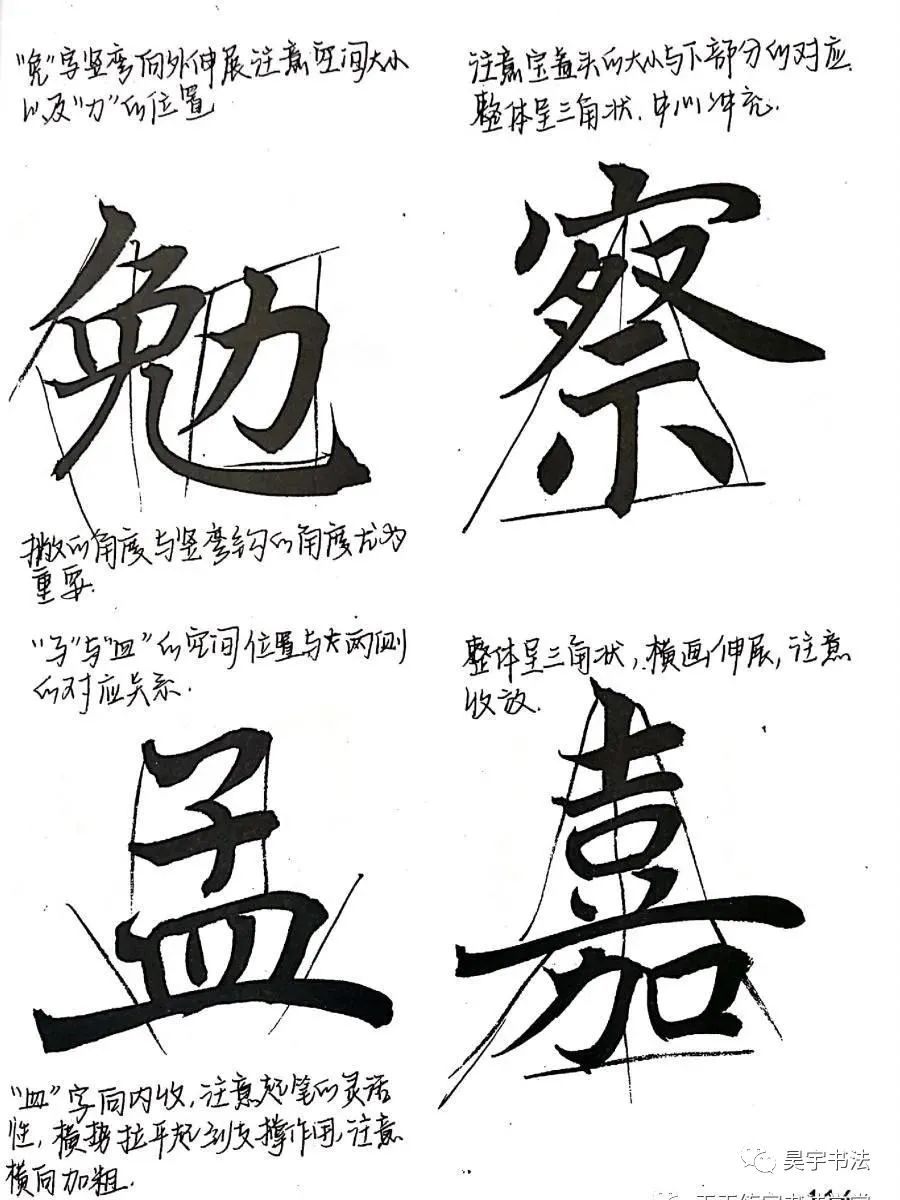 "免"字竖弯向外伸展注意空间大小
以及"力"的位置
注意宝盖头的大小与下部分的对应.
整体呈三角状,
勉
察
撇的角度与竖弯钩的角度尤为
重要.
"子"与"皿"的空间位置与大两侧
的对应关系.
整体呈三角状,横画伸展,注意
收放.
孟
嘉
"皿"字向内收,注意起笔的灵活
性,横势拉平起到支撑作用,注意
横向加粗.
昊宇书法